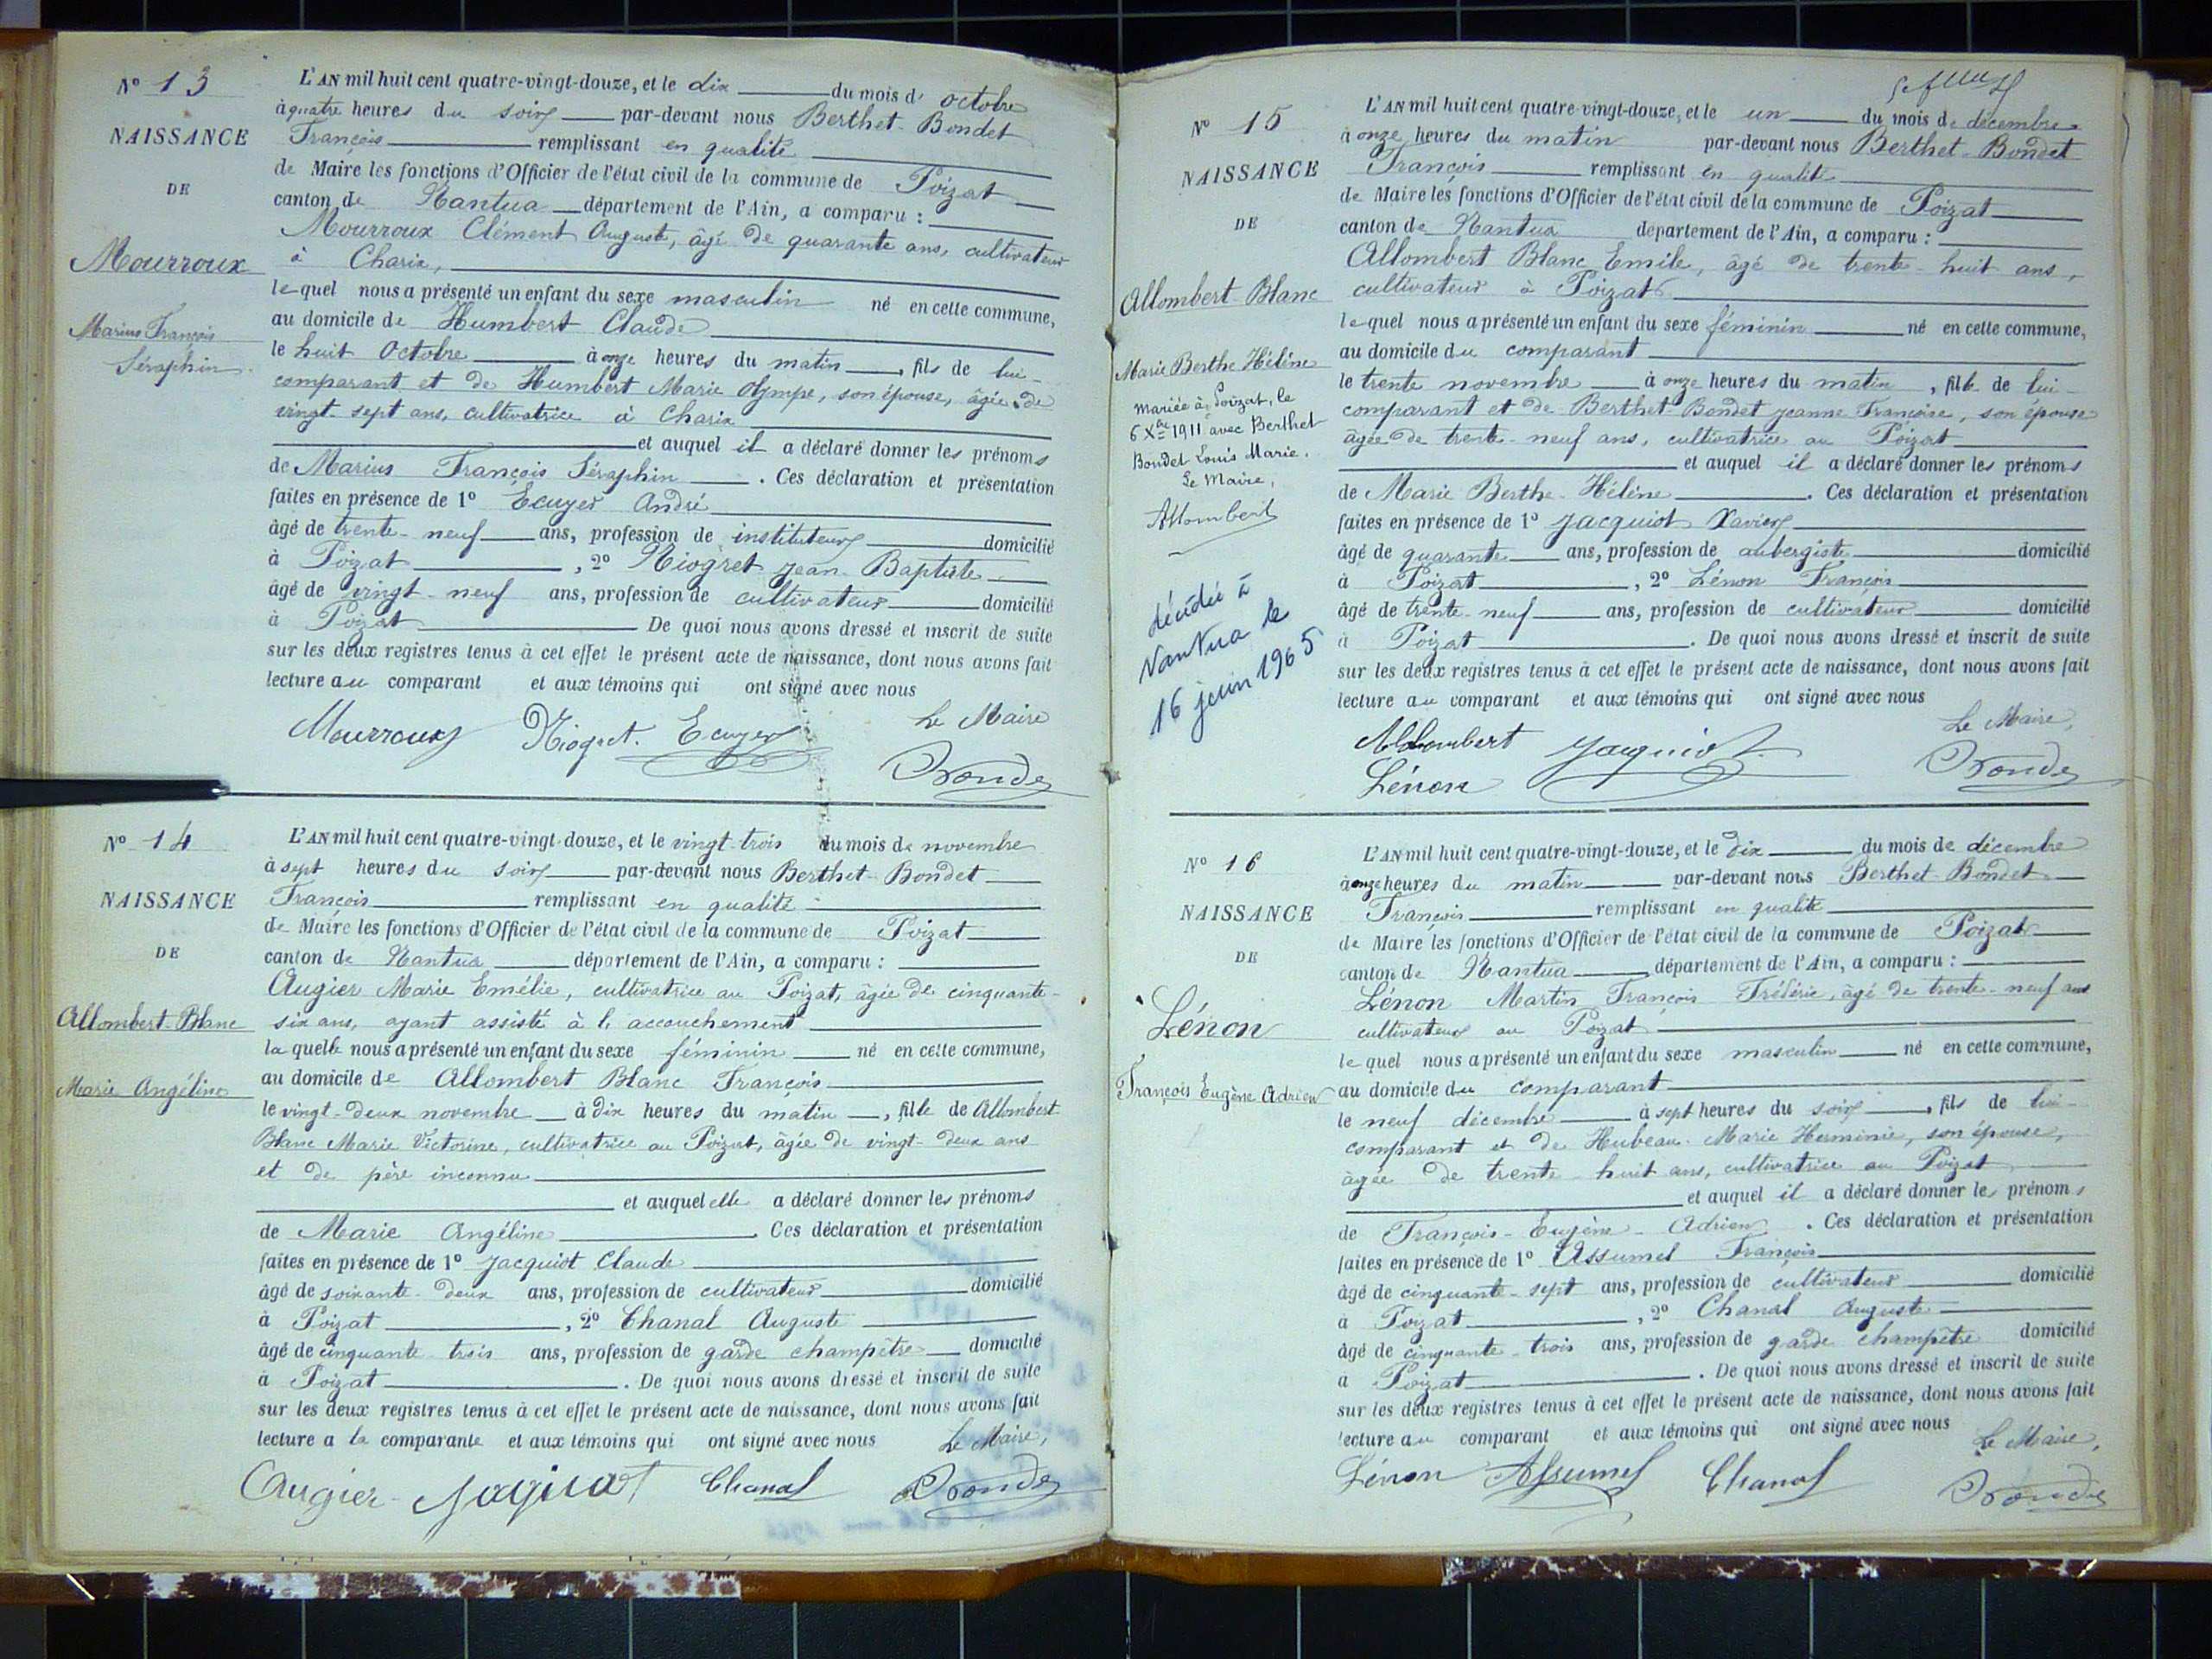 N° 13
NAISSANCE
DE
Mourroux
Marius François
Séraphin
L'AN mil huit cent quatre-vingt-douze, et le dix du mois d' octobre
à quatre heures du soir par-devant nous Berthet-Bondet
François remplissant en qualité
de Maire les fonctions d'Officier de l'état civil de la commune de Poizat
canton de Nantua département de l'Ain, a comparu :
Mourroux Clément Auguste, âgé de quarante ans, cultivateur
à Charix,
lequel nous a présenté un enfant du sexe masculin né en cette commune,
au domicile de Humbert Claude
le huit Octobre à onze heures du matin, fils de lui-
comparant et de Humbert Marie Olympe, son épouse, âgée de
vingt sept ans, cultivatrice à Charix
et auquel il a déclaré donner les prénoms
de Marius François Séraphin. Ces déclaration et présentation
faites en présence de 1° Ecuyer André
âgé de trente-neuf ans, profession de instituteur domicilié
à Poizat, 2° Niogret Jean-Baptiste
âgé de vingt-neuf ans, profession de cultivateur domicilié
à Poizat De quoi nous avons dressé et inscrit de suite
sur les deux registres tenus à cet effet le présent acte de naissance, dont nous avons fait
lecture au comparant et aux témoins qui ont signé avec nous
Le Maire
Mourroux Niogret. Ecuyer
N° 14
NAISSANCE
DE
Allombert-Blanc
Marie Angéline
L'AN mil huit cent quatre-vingt-douze, et le vingt-trois du mois de novembre
à sept heures du soir par-devant nous Berthet-Bondet
François remplissant en qualité
de Maire les fonctions d'Officier de l'état civil de la commune de Poizat
canton de Nantua département de l'Ain, a comparu :
Augier Marie Emélie, cultivatrice au Poizat, âgée de cinquante-
six ans, ayant assisté à l'accouchement
laquelle nous a présenté un enfant du sexe féminin né en cette commune,
au domicile de Allombert Blanc François
le vingt-deux novembre à dix heures du matin, fille de Allombert
Blanc Marie Victorine, cultivatrice au Poizat, âgée de vingt-deux ans
et de père inconnu
et auquel elle a déclaré donner les prénoms
de Marie Angéline Ces déclaration et présentation
faites en présence de 1° Jacquiot Claude
âgé de soixante-deux ans, profession de cultivateur domicilié
à Poizat, 2° Chanal Auguste
âgé de cinquante trois ans, profession de garde champêtre domicilié
à Poizat. De quoi nous avons dressé et inscrit de suite
sur les deux registres tenus à cet effet le présent acte de naissance, dont nous avons fait
lecture a la comparante et aux témoins qui ont signé avec nous
Le Maire,
Augier Jaquiot Chanal
N° 15
NAISSANCE
DE
Allombert-Blanc
Marie Berthe Hélène
Mariée à Poizat, le
6 Xbre 1911 avec Berthet
Bondet Louis Marie.
Le Maire,
Allombert
décédée à
Nantua le
16 juin 1965
L'AN mil huit cent quatre-vingt-douze, et le un du mois de décembre
à onze heures du matin par-devant nous Berthet-Bondet
François remplissant en qualité
de Maire les fonctions d'Officier de l'état civil de la commune de Poizat
canton de Nantua département de l'Ain, a comparu :
Allombert Blanc Emile, âgé de trente-huit ans,
cultivateur à Poizat
lequel nous a présenté un enfant du sexe féminin né en cette commune,
au domicile du comparant
le trente novembre à onze heures du matin, fille de lui-
comparant et de Berthet-Bondet Jeanne Françoise, son épouse
âgée de trente-neuf ans, cultivatrice au Poizat
et auquel il a déclaré donner les prénoms
de Marie Berthe-Hélène. Ces déclaration et présentation
faites en présence de 1° Jacquiot Xavier
âgé de quarante ans, profession de aubergiste domicilié
à Poizat, 2° Lénon François
âgé de trente-neuf ans, profession de cultivateur domicilié
à Poizat. De quoi nous avons dressé et inscrit de suite
sur les deux registres tenus à cet effet le présent acte de naissance, dont nous avons fait
lecture au comparant et aux témoins qui ont signé avec nous
Le Maire,
Allombert Jacquiot
Lénon
N° 16
NAISSANCE
DE
Lénon
François Eugène Adrien
L'AN mil huit cent quatre-vingt-douze, et le dix du mois de décembre
à onze heures du matin par-devant nous Berthet-Bondet
François remplissant en qualité
de Maire les fonctions d'Officier de l'état civil de la commune de Poizat
canton de Nantua département de l'Ain, a comparu :
Lénon Martin François Frédéric, âgé de trente-neuf ans
cultivateur au Poizat
lequel nous a présenté un enfant du sexe masculin né en cette commune,
au domicile du comparant
le neuf décembre à sept heures du soir, fils de lui-
comparant et de Hubeau Marie Herminie, son épouse,
âgée de trente-huit ans, cultivatrice au Poizat
et auquel il a déclaré donner les prénoms
de François-Eugène-Adrien. Ces déclaration et présentation
faites en présence de 1° Assumel François
âgé de cinquante-sept ans, profession de cultivateur domicilié
à Poizat, 2° Chanal Auguste
âgé de cinquante-trois ans, profession de garde champêtre domicilié
à Poizat. De quoi nous avons dressé et inscrit de suite
sur les deux registres tenus à cet effet le présent acte de naissance, dont nous avons fait
lecture au comparant et aux témoins qui ont signé avec nous
Le Maire,
Lénon Assumel Chanal